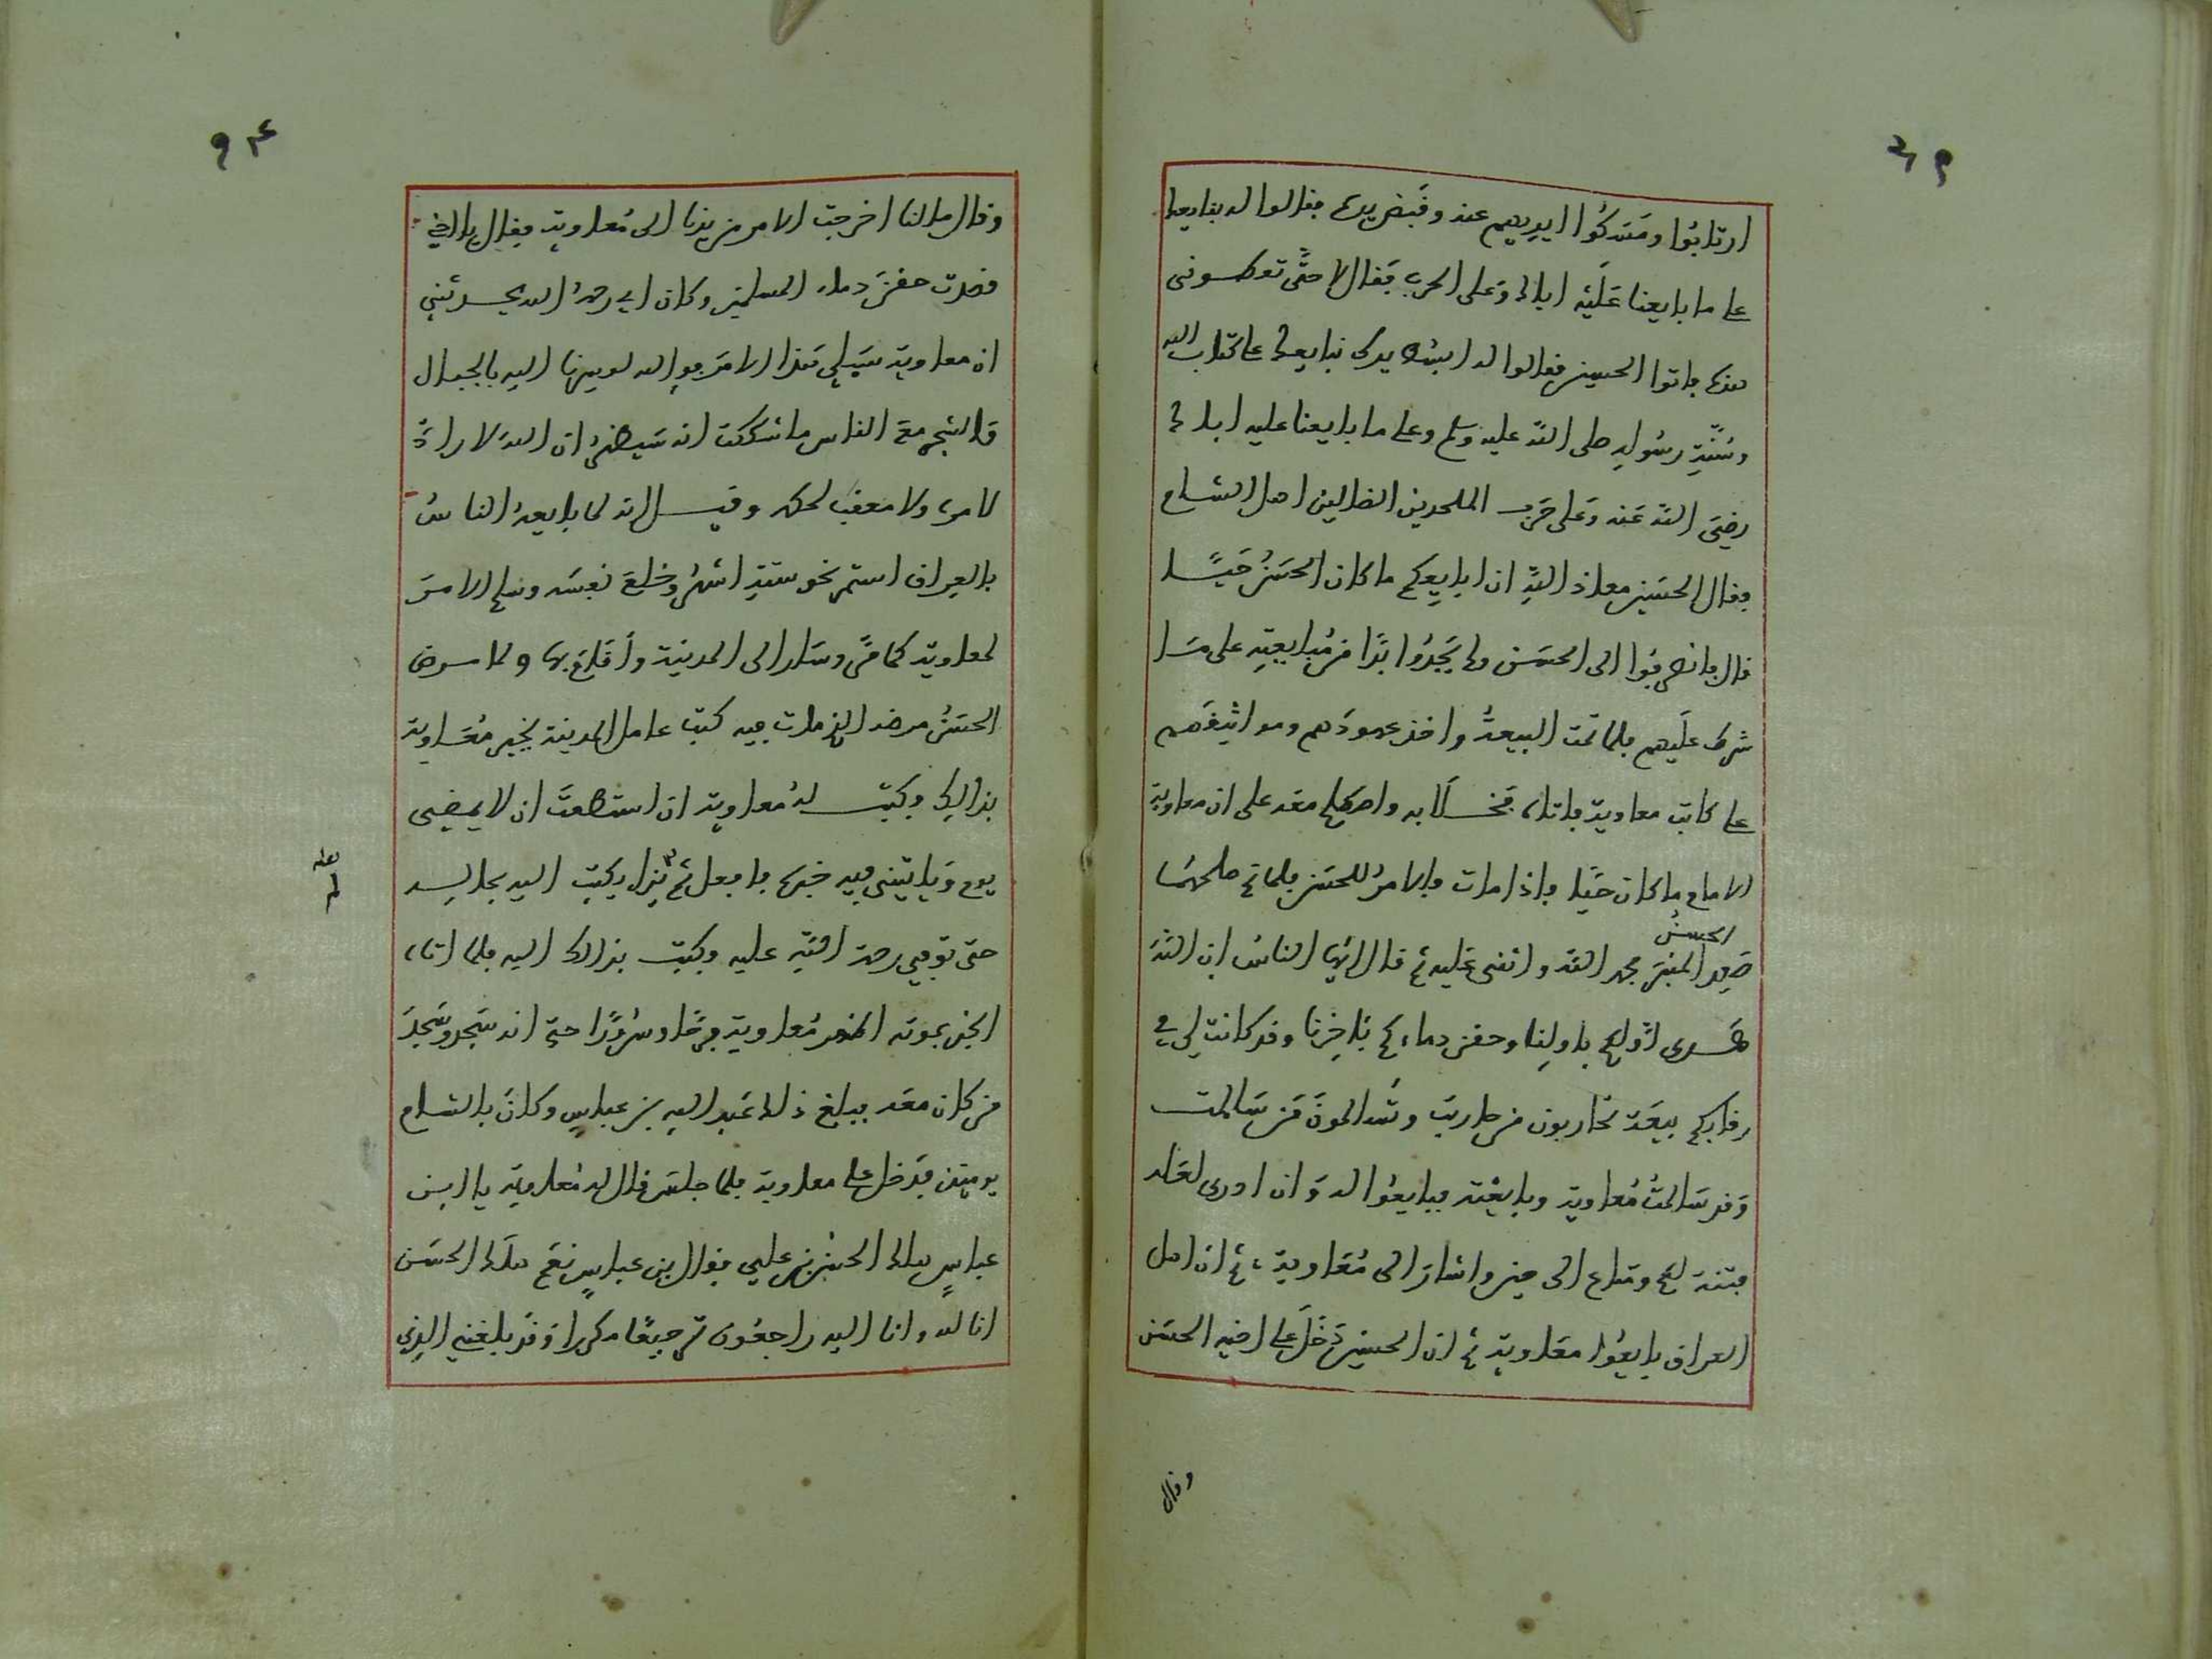 ارتابوا ومسكوا ايديهم عنه وقبض يده فقالوا له نبايعك
على ما بايعنا عليه اباك وعلى الحرب فقال لا حتى تعطوني
فاتوا الحسين فقالوا له ابسط يدك نبايعك على كتاب الله
وسنّة رسوله صلى الله عليه وسلم وعلى ما بايعنا عليه اباك
رضي الله عنه وعلى حرب الملحدين الضالين اهل الشام
فقال الحسين معاذ الله ان ابايعكم ما كان الحسن حيا
قال فانصرفوا الى الحسن ولم يجدوا بدّا من مبايعته على ما
شرط عليهم فلما تمت البيعة واخذ عهودهم ومواثيقهم
على كاتب معاوية فاتاه فخلا به واصطلح معه على ان معاوية
الامام ما كان حيا فاذا مات فالامر للحسن فلما تم صلحهما
صعد الحسن المنبر فحمد الله واثنى عليه ثم قال ايها الناس ان الله
هدى اولكم باولنا وحقن دماءكم باخرنا وقد كانت لي في
رقابكم بيعة تحاربون من حاربت وتسالمون من سالمت
وقد سالمت معاوية وبايعته فبايعوا له وان ادرى لعله
فتنة لكم ومتاع الى حين واشار الى معاوية ثم ان اهل
العراق بايعوا معاوية ثم ان الحسين دخل على اخيه الحسن
وقال
وقال ما لنا اخرجت الامر من يدنا الى معاوية فقال يا اخي
قصدت حقن دماء المسلمين وكان ابي رحمه الله يحدثني
ان معاوية سيلي هذا الامر فوالله لو سرنا اليه بالجبال
والشجر مع الناس ما شككت انه سيظهر ان الله لا رادّ
لامره ولا معقب لحكمه وقيل انه لما بايعه الناس
بالعراق استمر نحو ستة اشهر وخلع نفسه وسلم الامر
لمعاوية كما مرّ وسار الى المدينة واقام بها ولما مرض
الحسن مرضه الذي مات فيه كتب عامل المدينة يخبر معاوية
بذالك وكتب له معاوية ان استطعت ان لا يمضي
يوم ويا تيني فيه خبره فافعل ثم يزل يكتب اليه بحاله
لعله
لم
حتى توفي رحمة الله عليه وكتب بذالك اليه فلما اتاه
الخبر بموته اظهر معاوية فرحًا وسرورًا حتى انه سجد وسجد
من كان معه فبلغ ذلك عبد الله بن عباس وكان بالشام
يومئذ فدخل على معاوية فلما جلس قال له معاوية يا ابن
عباس هلك الحسن بن علي فقال بن عباس نعم هلك الحسن
انا لله وانا اليه راجعون ترجيعًا مكررا وقد بلغني الذي